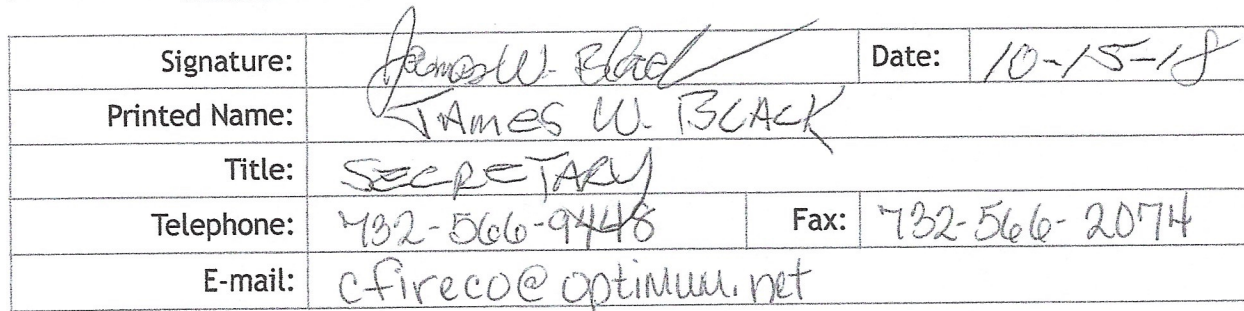 Signature: James W. Black Date: 10-15-18
Printed Name: JAMES W. BLACK
Title: SECRETARY
Telephone: 732-566-9448 Fax: 732-566-2074
E-mail: cfireco@optimum.net